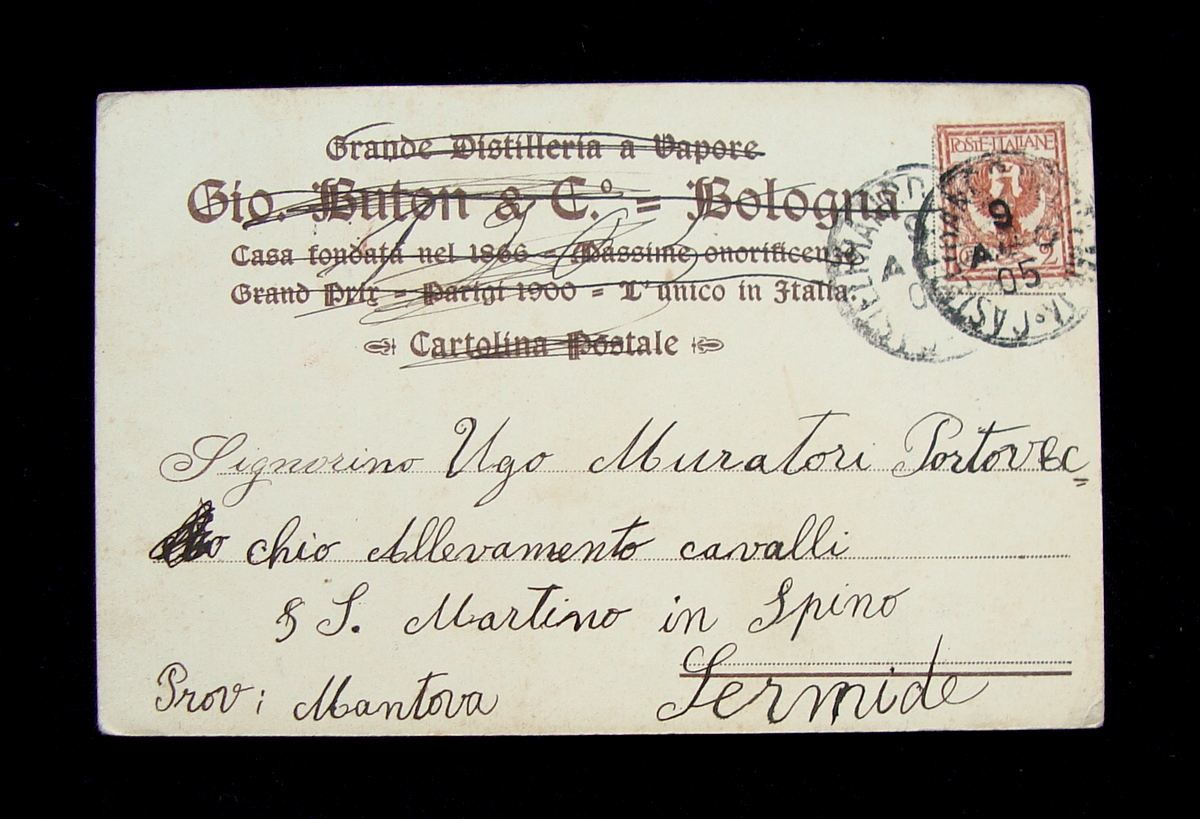 Grande Distilleria a Vapore
Gio. Buton & C.º = Bologna
Casa fondata nel 1866 - Massime onorificenze
Grand Prix - Parigi 1900 = L'unico in Italia.
Cartolina Postale
POSTE·ITALIANE
2
9
05
Signorino Ugo Muratori Portovec=
chio Allevamento cavalli
S. Martino in Spino
Sermide
Prov: Mantova